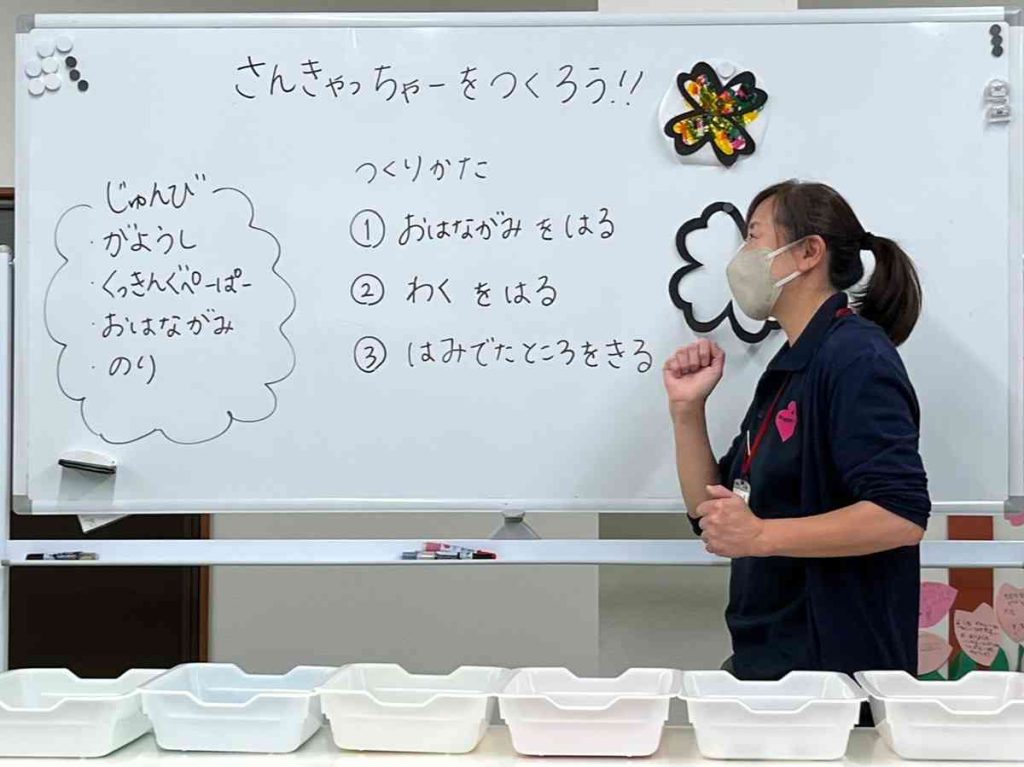 さんきゃっちゃーをつくろう!!
じゅんび
・がようし
・くっきんぐぺーぱー
・おはながみ
・のり
つくりかた
① おはながみをはる
② わくをはる
③ はみでたところをきる